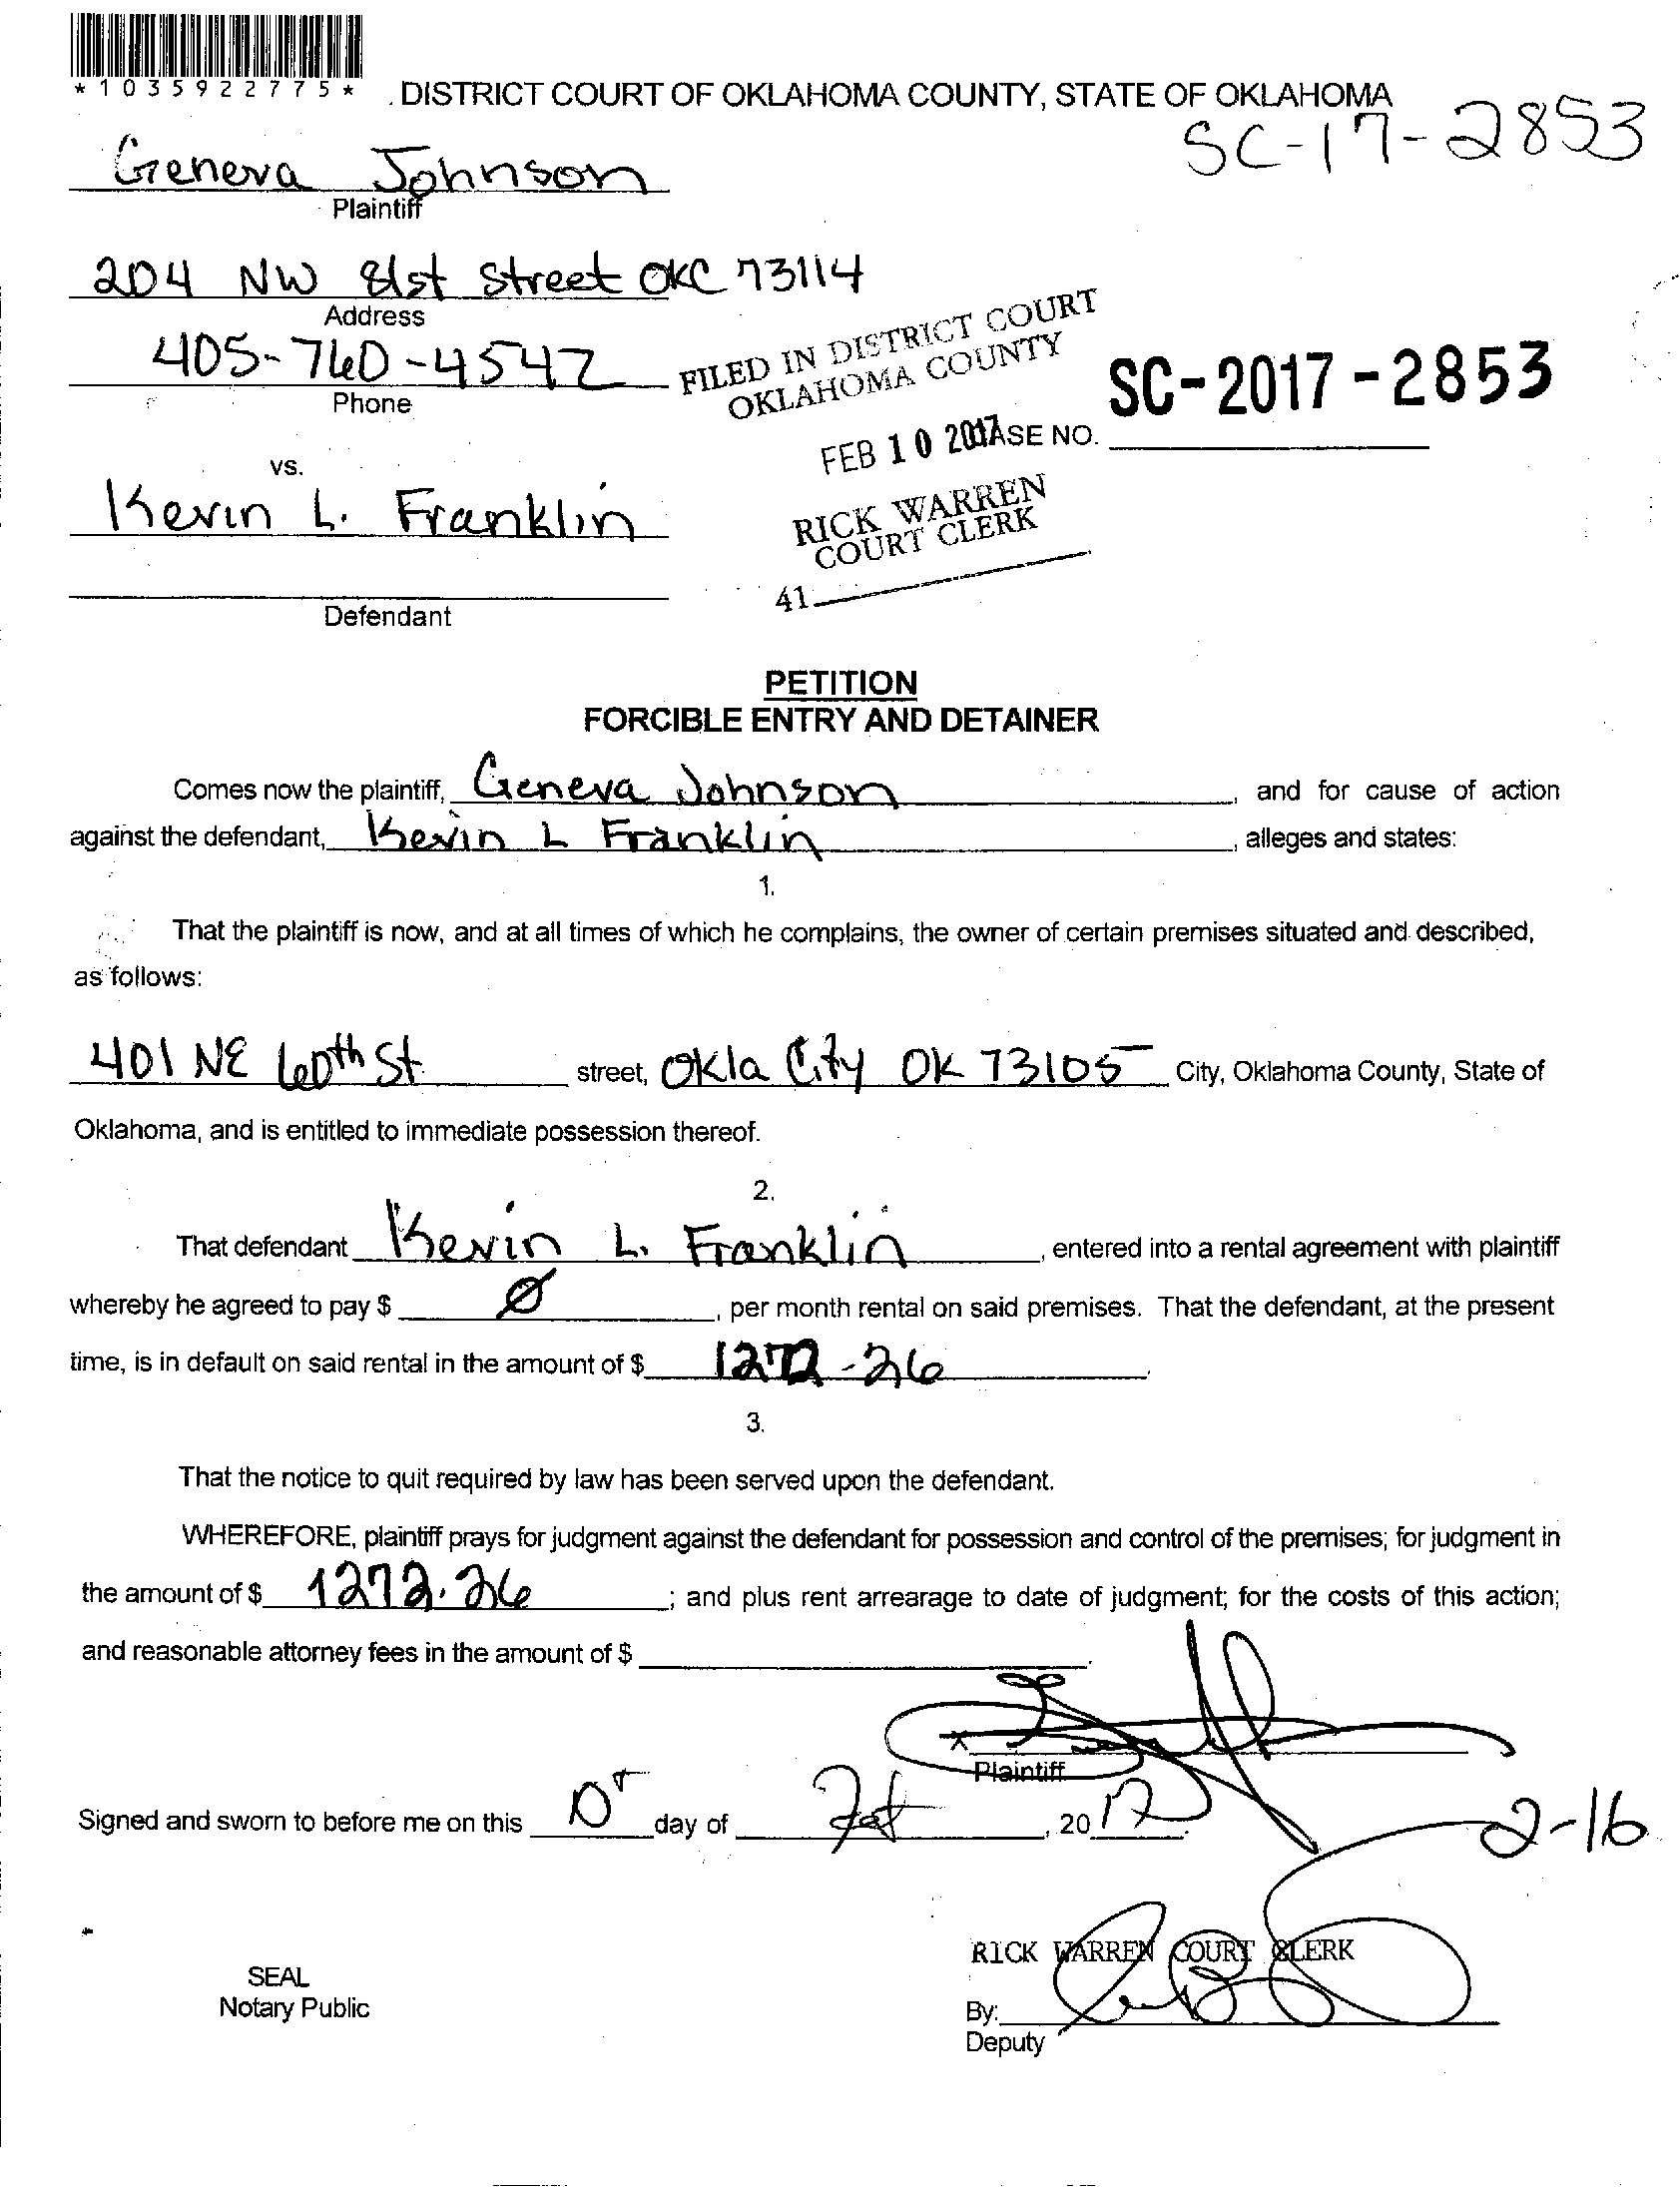 *1035922775*
DISTRICT COURT OF OKLAHOMA COUNTY, STATE OF OKLAHOMA
SC-17-2853
Geneva Johnson
Plaintiff
204 NW 81st Street OKC 73114
Address
405-760-4542
Phone
FILED IN DISTRICT COURT
OKLAHOMA COUNTY
SC-2017-2853
FEB 10 2017
CASE NO.
vs.
Kevin L. Franklin
RICK WARREN
COURT CLERK
41
Defendant
PETITION
FORCIBLE ENTRY AND DETAINER
Comes now the plaintiff, Geneva Johnson, and for cause of action
against the defendant, Kevin L Franklin, alleges and states:
1.
That the plaintiff is now, and at all times of which he complains, the owner of certain premises situated and described,
as follows:
401 NE 60th St street, Okla City OK 73105 City, Oklahoma County, State of
Oklahoma, and is entitled to immediate possession thereof.
2.
That defendant Kevin L. Franklin, entered into a rental agreement with plaintiff
whereby he agreed to pay $ Ø, per month rental on said premises. That the defendant, at the present
time, is in default on said rental in the amount of $ 1272-26.
3.
That the notice to quit required by law has been served upon the defendant.
WHEREFORE, plaintiff prays for judgment against the defendant for possession and control of the premises; for judgment in
the amount of $ 1272.26; and plus rent arrearage to date of judgment; for the costs of this action;
and reasonable attorney fees in the amount of $ .
X
Plaintiff
Signed and sworn to before me on this day of Feb, 2017.
2-16
RICK WARREN COURT CLERK
SEAL
Notary Public
By:
Deputy